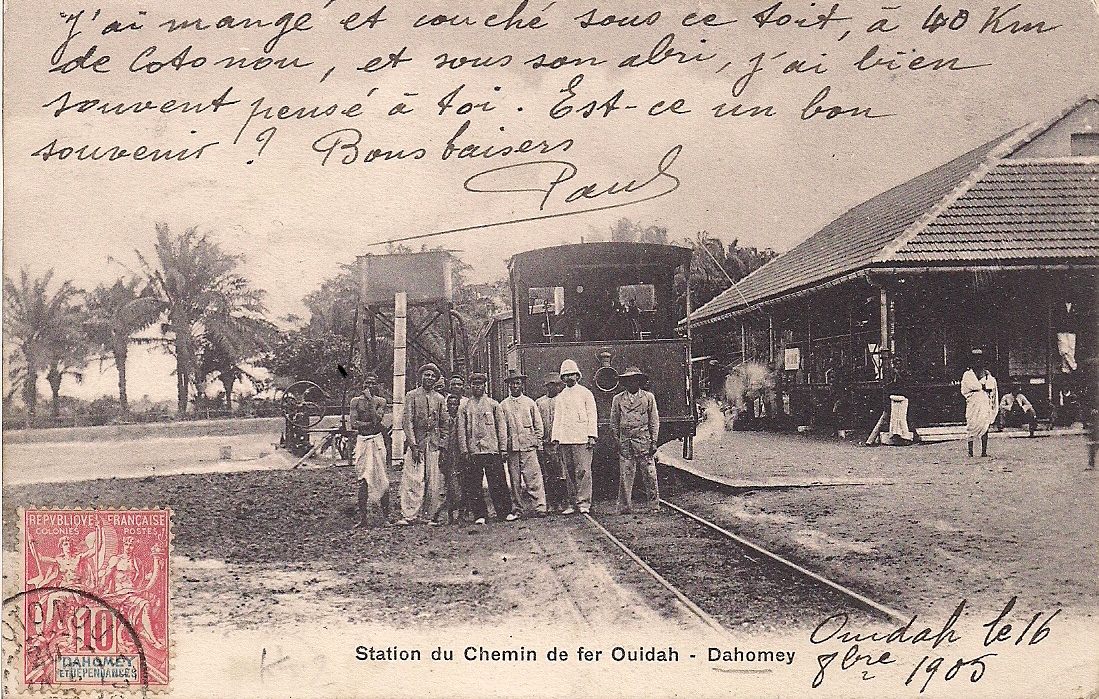 J'ai mangé et couché sous ce toit, à 40 Km
de Cotonou, et sous son abri, j'ai bien
souvent pensé à toi. Est-ce un bon
souvenir ? Bons baisers
Paul
REPUBLIQUE FRANÇAISE
COLONIES POSTES
10
DAHOMEY
ET DÉPENDANCES
Station du Chemin de fer Ouidah - Dahomey
Ouidah le 16
8bre 1905